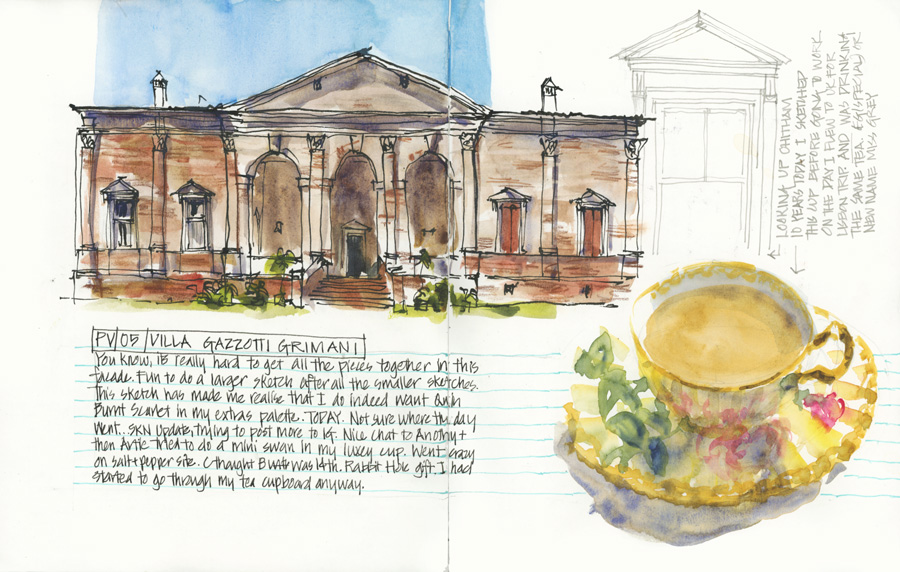 PV/05/VILLA GAZZOTTI GRIMANI
You know, it's really hard to get all the pieces together in this
facade. Fun to do a larger sketch after all the smaller sketches.
This sketch has made me realise that I do indeed want Quin
Burnt Scarlet in my extras palette. TODAY. Not sure where the day
went. SKN Update, trying to post more to IG. Nice chat to Anothy +
then Artie tried to do a mini swan in my luxey cup. Went crazy
on salt + pepper site. C thought B was 14th. Rabbit Hole gift. I had
started to go through my tea cupboard anyway.
LOOKING UP CHATHAM
10 YEARS TODAY I SKETCHED
THIS CUP BEFORE GOING TO WORK
ON THE DAY I FLEW TO UK FOR
USKVN TRIP AND WAS DRINKING
THE SAME TEA. EG(SPECIAL) OR
NEW NAME MISS GREY